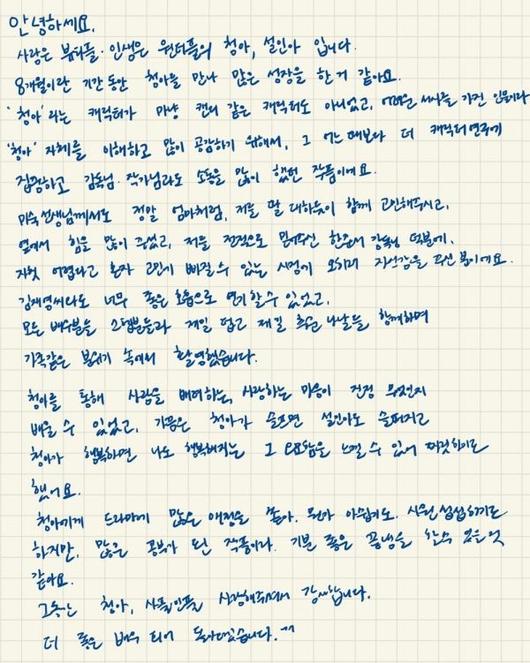 안녕하세요.
사랑은 뷰티풀·인생은 원더풀의 청아, 설인아 입니다.
8개월이란 기간동안 청아를 만나 많은 성장을 한 거 같아요.
'청아' 라는 캐릭터가 마냥 캔디 같은 캐릭터도 아니었고, 어려운 서사를 가진 인물이라
'청아' 자체를 이해하고 많이 공감하기 위해서, 그 어느때보다 더 캐릭터연구에
집중하고 감독님·작가님과도 소통을 많이 했던 작품이에요.
미숙선생님께서도 정말 엄마처럼, 저를 딸 대하듯이 함께 고민해주시고,
옆에서 힘을 많이 주셨고, 저를 전적으로 믿어주신 한준서 감독님 덕분에,
자칫 어렵다고 혼자 고민에 빠질수 있는 시점에 오히려 자신감을 주신 분이에요.
김재영씨와도 너무 좋은 호흡으로 연기할수 있었고,
모든 배우분들 스탭분들과 제일 덥고 제일 추운 나날들 함께하며
가족같은 분위기 속에서 촬영했습니다.
청아를 통해 사람을 배려하는, 사랑하는 마음이 진정 무엇인지
배울 수 있었고, 가끔은 청아가 슬프면 설인아도 슬퍼지고
청아가 행복하면 나도 행복해지는 그 느낄수 있어 따뜻하기도
했어요.
청아에게 드라마에 많은 애정을 쏟아. 뭔가 아쉽기도. 시원섭섭하기도
하지만, 많은 공부가 된 작품이라 기분 좋은 끝맺음 할수 있을 것
같아요.
그동안 청아, 사풀인풀 사랑해주셔서 감사합니다.
더 좋은 배우 되어 돌아오겠습니다. ^^